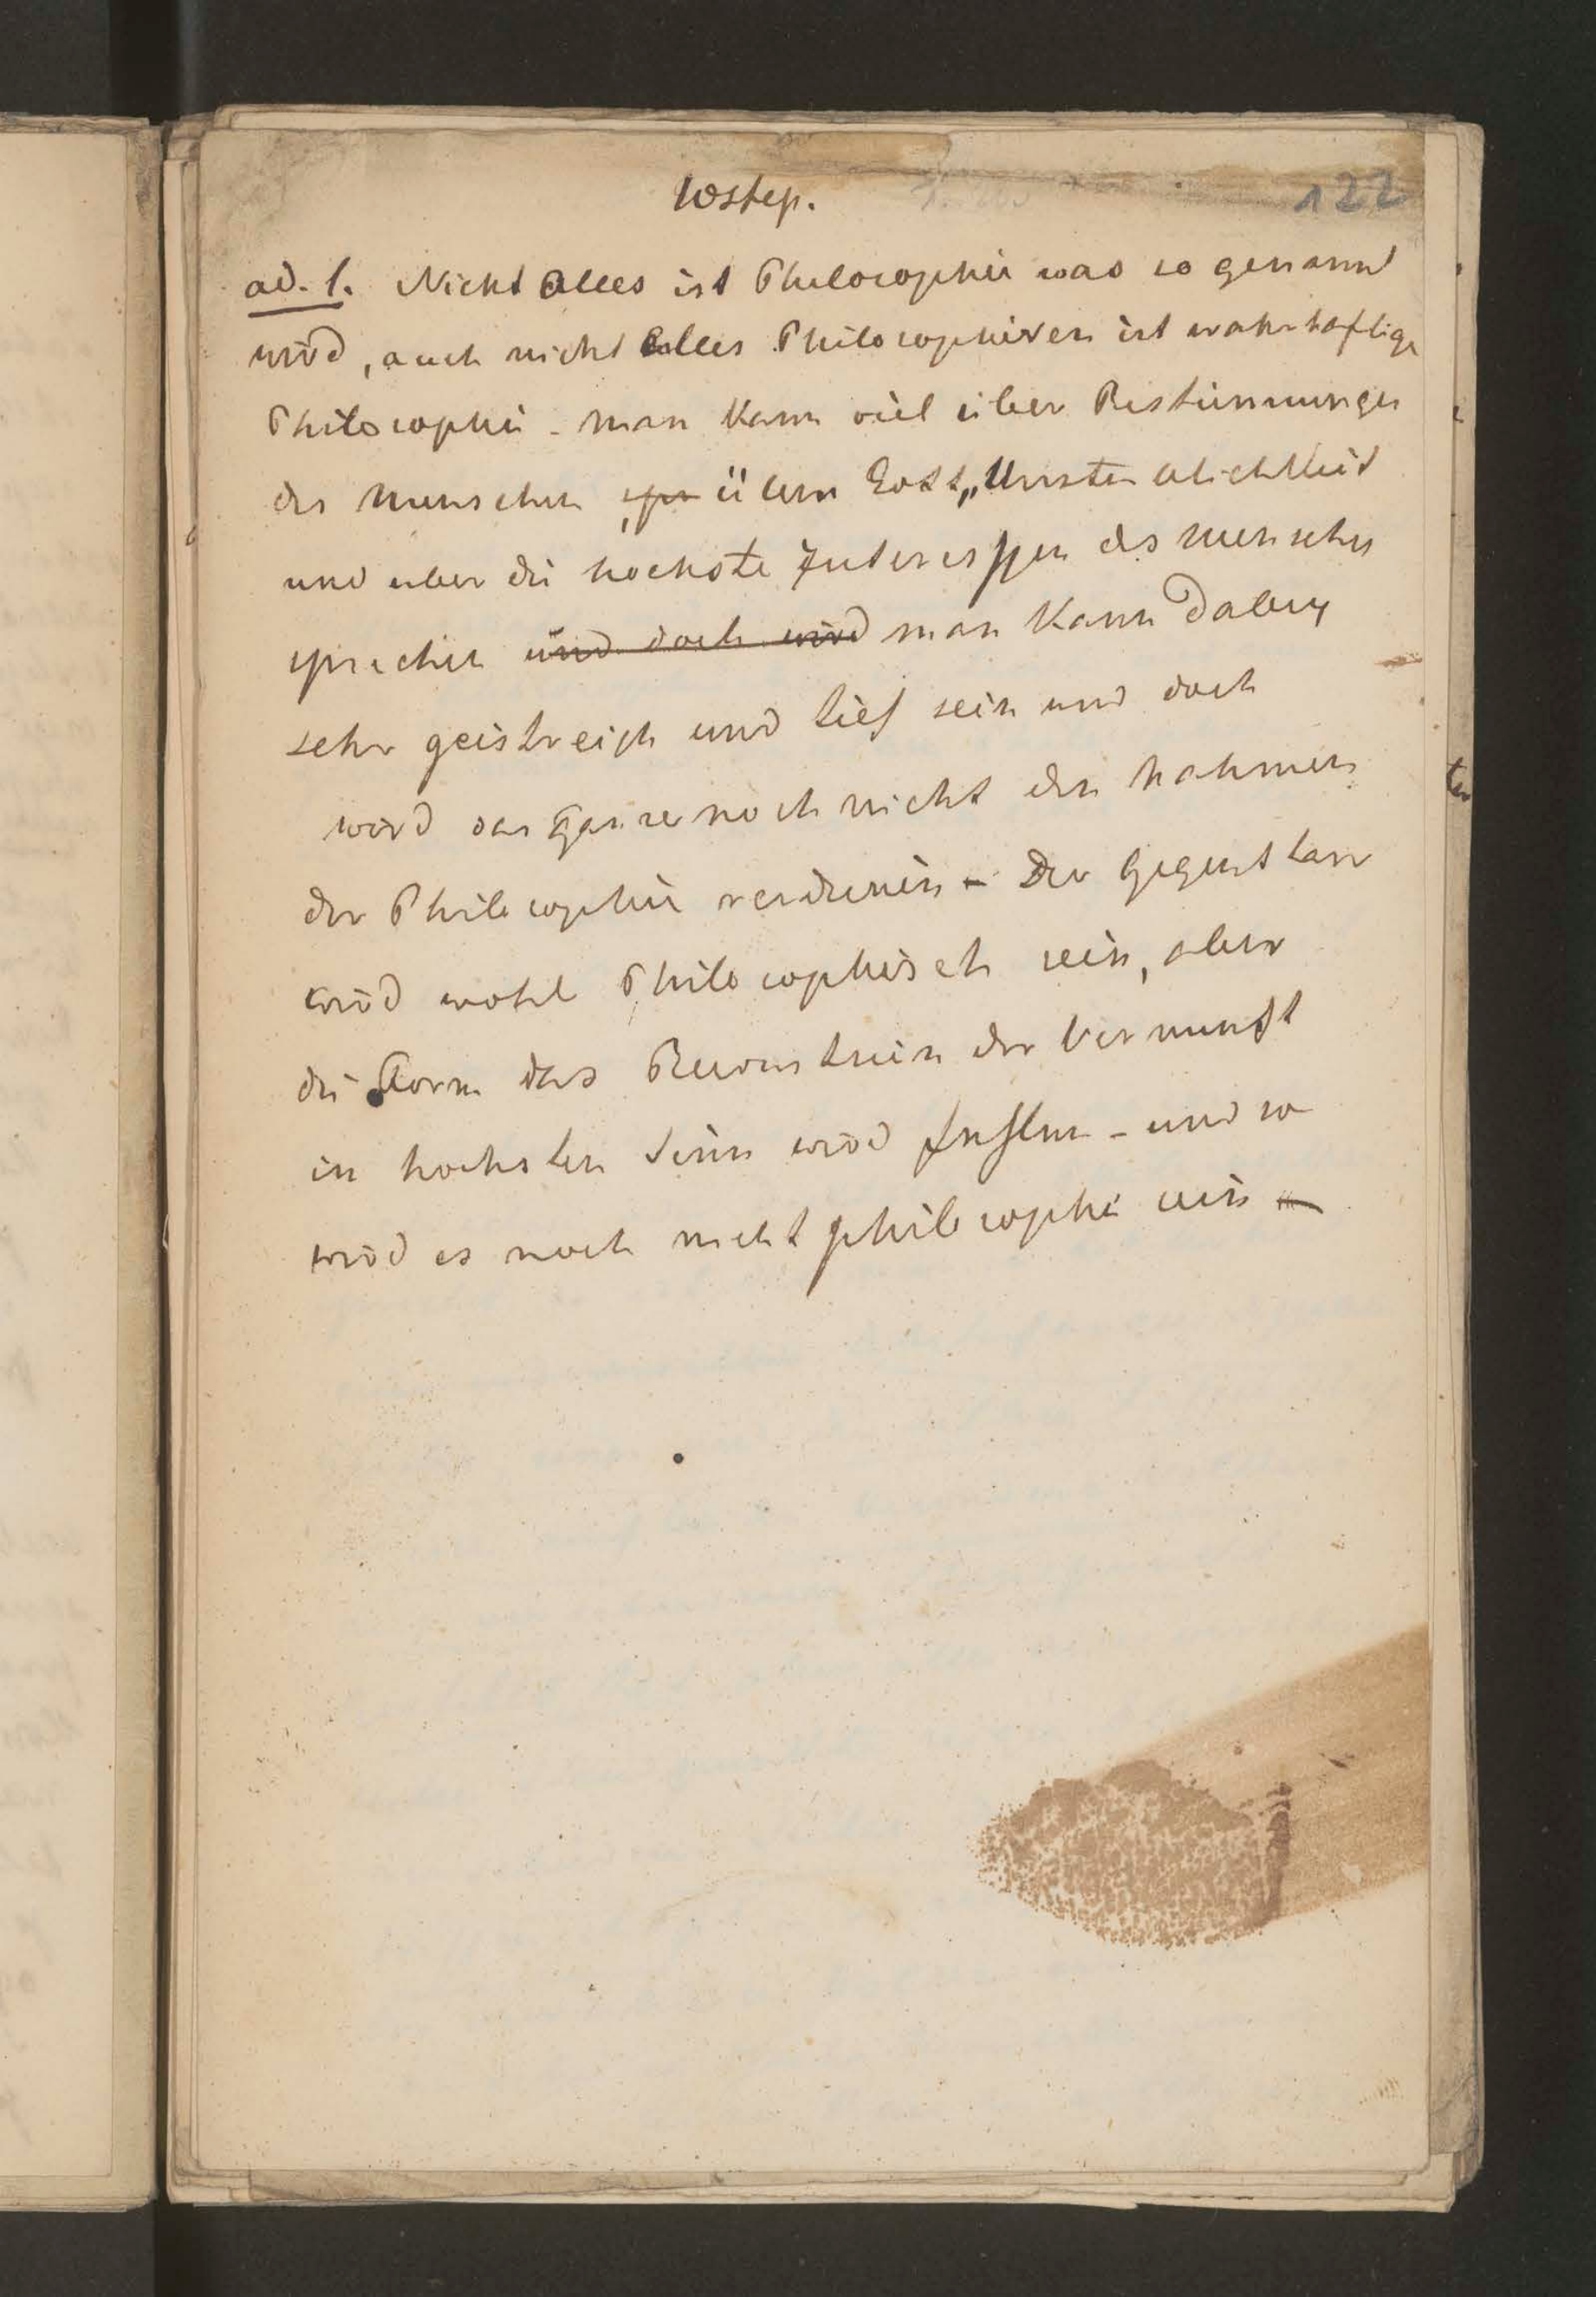 Wstep.
122
ad. 1. Nicht Alles ist Philosophie was so genannt
wird, auch nicht Alles Philosophiren ist wahrhaftige
Philosophie - Man kann viel über Bestimmungen
des Menschen, spr übern Gott, Unsterblichkeit
und uber die hochste Interessen des Menschen
sprechen und doch wird man kann dabey
sehr geistreich und tief sein und doch
wird das Ganze noch nicht den Nahmen
der Philosophie verdienen - Der Gegenstan
wird wohl Philosophisch sein, aber
die Form das Bewustsein der Vernunft
in hochsten Sinn wird fehlen - und so
wird es noch nicht philosophi sein -